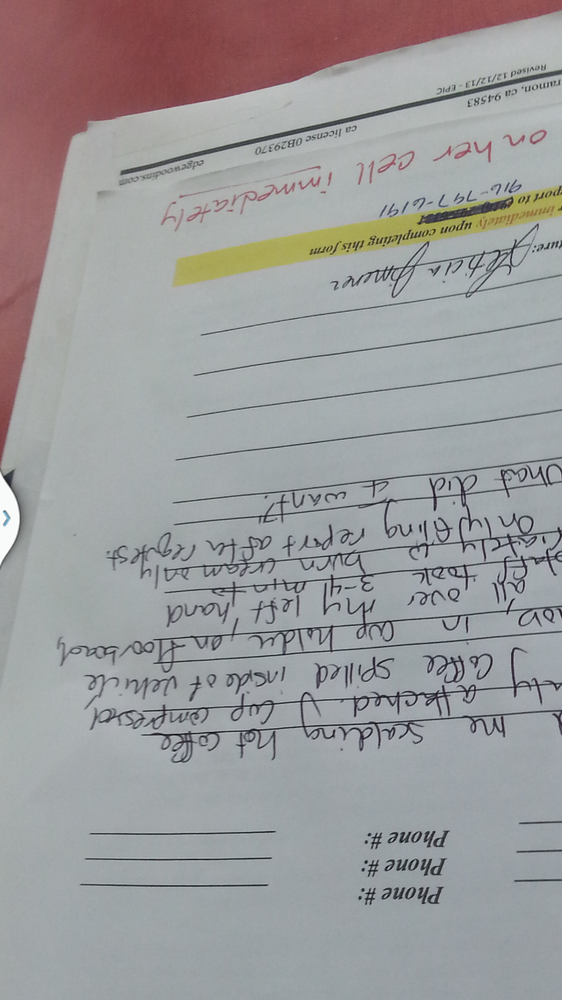 Phone #:
Phone #:
Phone #:
me scalding hot coffee
attached. J cup compressed
J coffee spilled inside of vehicle
, in cup holder, on floorboard,
all over my left hand
staff took 3-4 min to
burn cream only
only filing report after request.
What did I want?
Leticia Jimenez
immediately upon completing this form
port to 916-797-6191
on her cell immediately
ramon, ca 94583 ca license 0B29370 edgewoodins.com
Revised 12/12/13 - EPIC